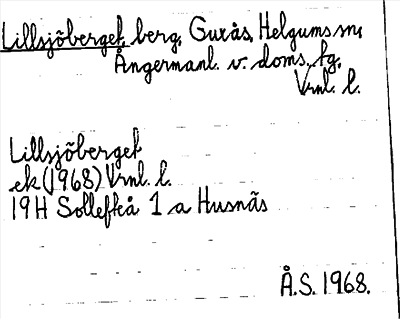 Lillsjöberget, berg, Guxås, Helgums sn,
Ångermanl. v. doms. fg,
Vrnl. l.
Lillsjöberget
ek (1968) Vrnl. l.
19H Sollefteå 1 a Husnäs
Å.S. 1968.